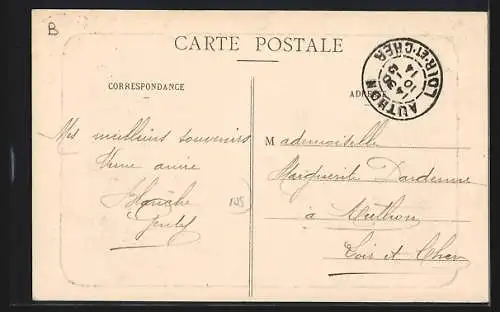 B
CARTE POSTALE
CORRESPONDANCE
ADRESSE
AUTHON
LOIR-ET-CHER
14
10
14
Mes meilleurs souvenirs
D'une amie
Blanche
Gentil
145
Mademoiselle
Marguerite Dardenne
à Authon
Loir et Cher